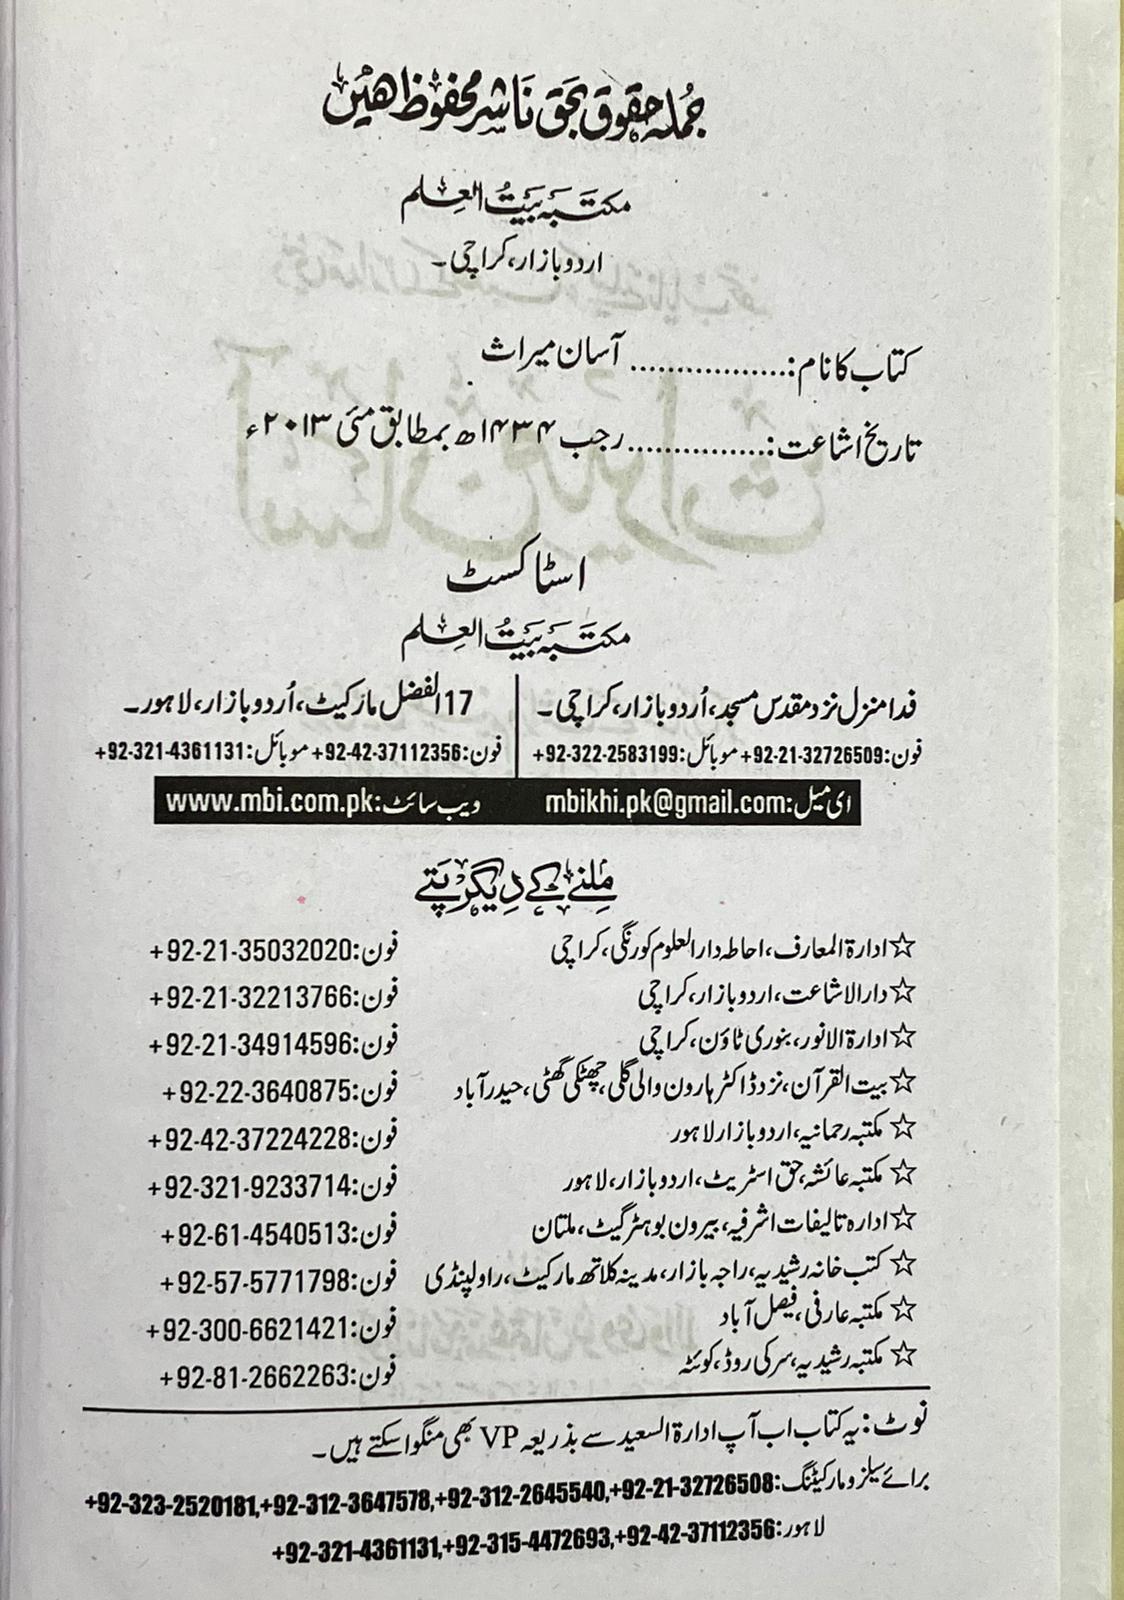 جملہ حقوق بحق ناشر محفوظ ھیں
مکتبہ بیت العلم
اردو بازار، کراچی۔
کتاب کا نام:.................. آسان میراث
تاریخ اشاعت:............... رجب ۱۴۳۴ھ بمطابق مئی ۲۰۱۳ء
اسٹاکسٹ
مکتبہ بیت العلم
فدا منزل نزد مقدس مسجد، اُردو بازار، کراچی۔
فون:+92-21-32726509 موبائل:+92-322-2583199
17 الفضل مارکیٹ، اُردو بازار، لاہور۔
فون:+92-42-37112356 موبائل:+92-321-4361131
ای میل:mbikhi.pk@gmail.com ویب سائٹ:www.mbi.com.pk
مِلنے کے دِیگر پتے
☆ ادارۃ المعارف، احاطہ دارالعلوم کورنگی، کراچی فون:+92-21-35032020
☆ دارالاشاعت، اردو بازار، کراچی فون:+92-21-32213766
☆ ادارۃ الانور، بنوری ٹاؤن، کراچی فون:+92-21-34914596
☆ بیت القرآن، نزد ڈاکٹر ہارون والی گلی، چھٹکی گھٹی، حیدرآباد فون:+92-22-3640875
☆ مکتبہ رحمانیہ، اردو بازار لاہور فون:+92-42-37224228
☆ مکتبہ عائشہ، حق اسٹریٹ، اردو بازار، لاہور فون:+92-321-9233714
☆ ادارہ تالیفات اشرفیہ، بیرون بوہڑ گیٹ، ملتان فون:+92-61-4540513
☆ کتب خانہ رشیدیہ، راجہ بازار، مدینہ کلاتھ مارکیٹ، راولپنڈی فون:+92-57-5771798
☆ مکتبہ عارفی، فیصل آباد فون:+92-300-6621421
☆ مکتبہ رشیدیہ، سرکی روڈ، کوئٹہ فون:+92-81-2662263
نوٹ: یہ کتاب اب آپ ادارۃ السعید سے بذریعہ VP بھی منگوا سکتے ہیں۔
برائے سیلز و مارکیٹنگ:+92-323-2520181,+92-312-3647578,+92-312-2645540,+92-21-32726508
لاہور:+92-321-4361131,+92-315-4472693,+92-42-37112356